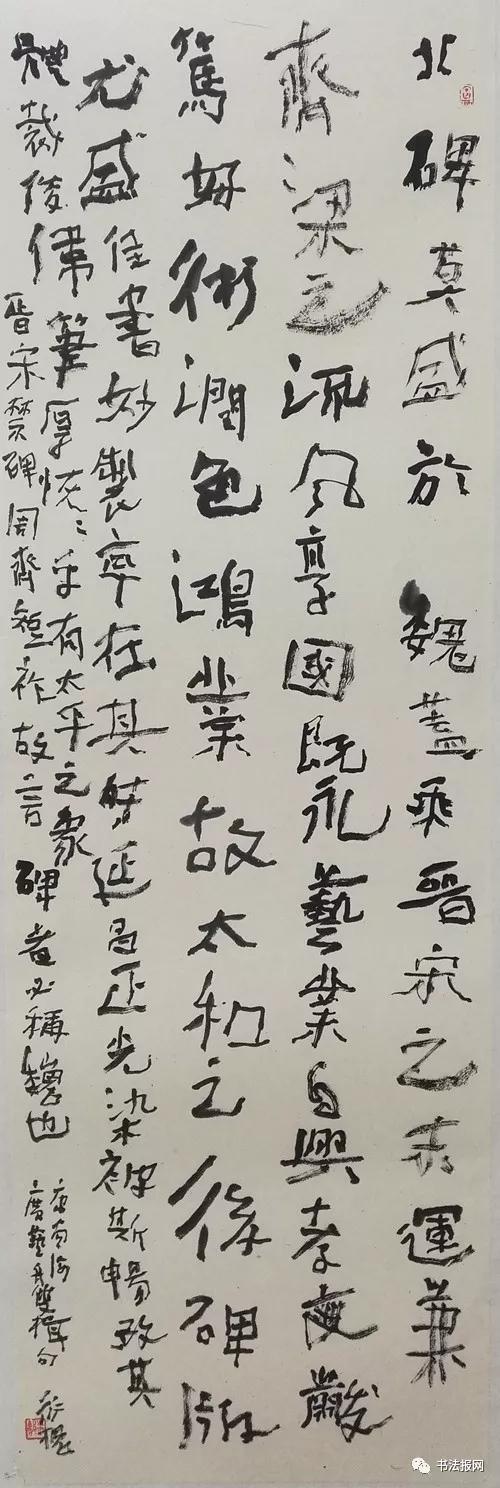 北碑莫盛於魏蓋乘晉宋之末運兼
齊梁之流風享國既永藝業自興孝黻
篤好術潤色鴻業故太和之後碑版
尤盛佳書妙製率在其時延昌正光染被斯暢考其
體裁俊偉筆厚恢〻乎有太平之象
晉宋禁碑周齊短祚故言碑者必稱魏也
康南海
廣藝舟雙楫句
书法报网